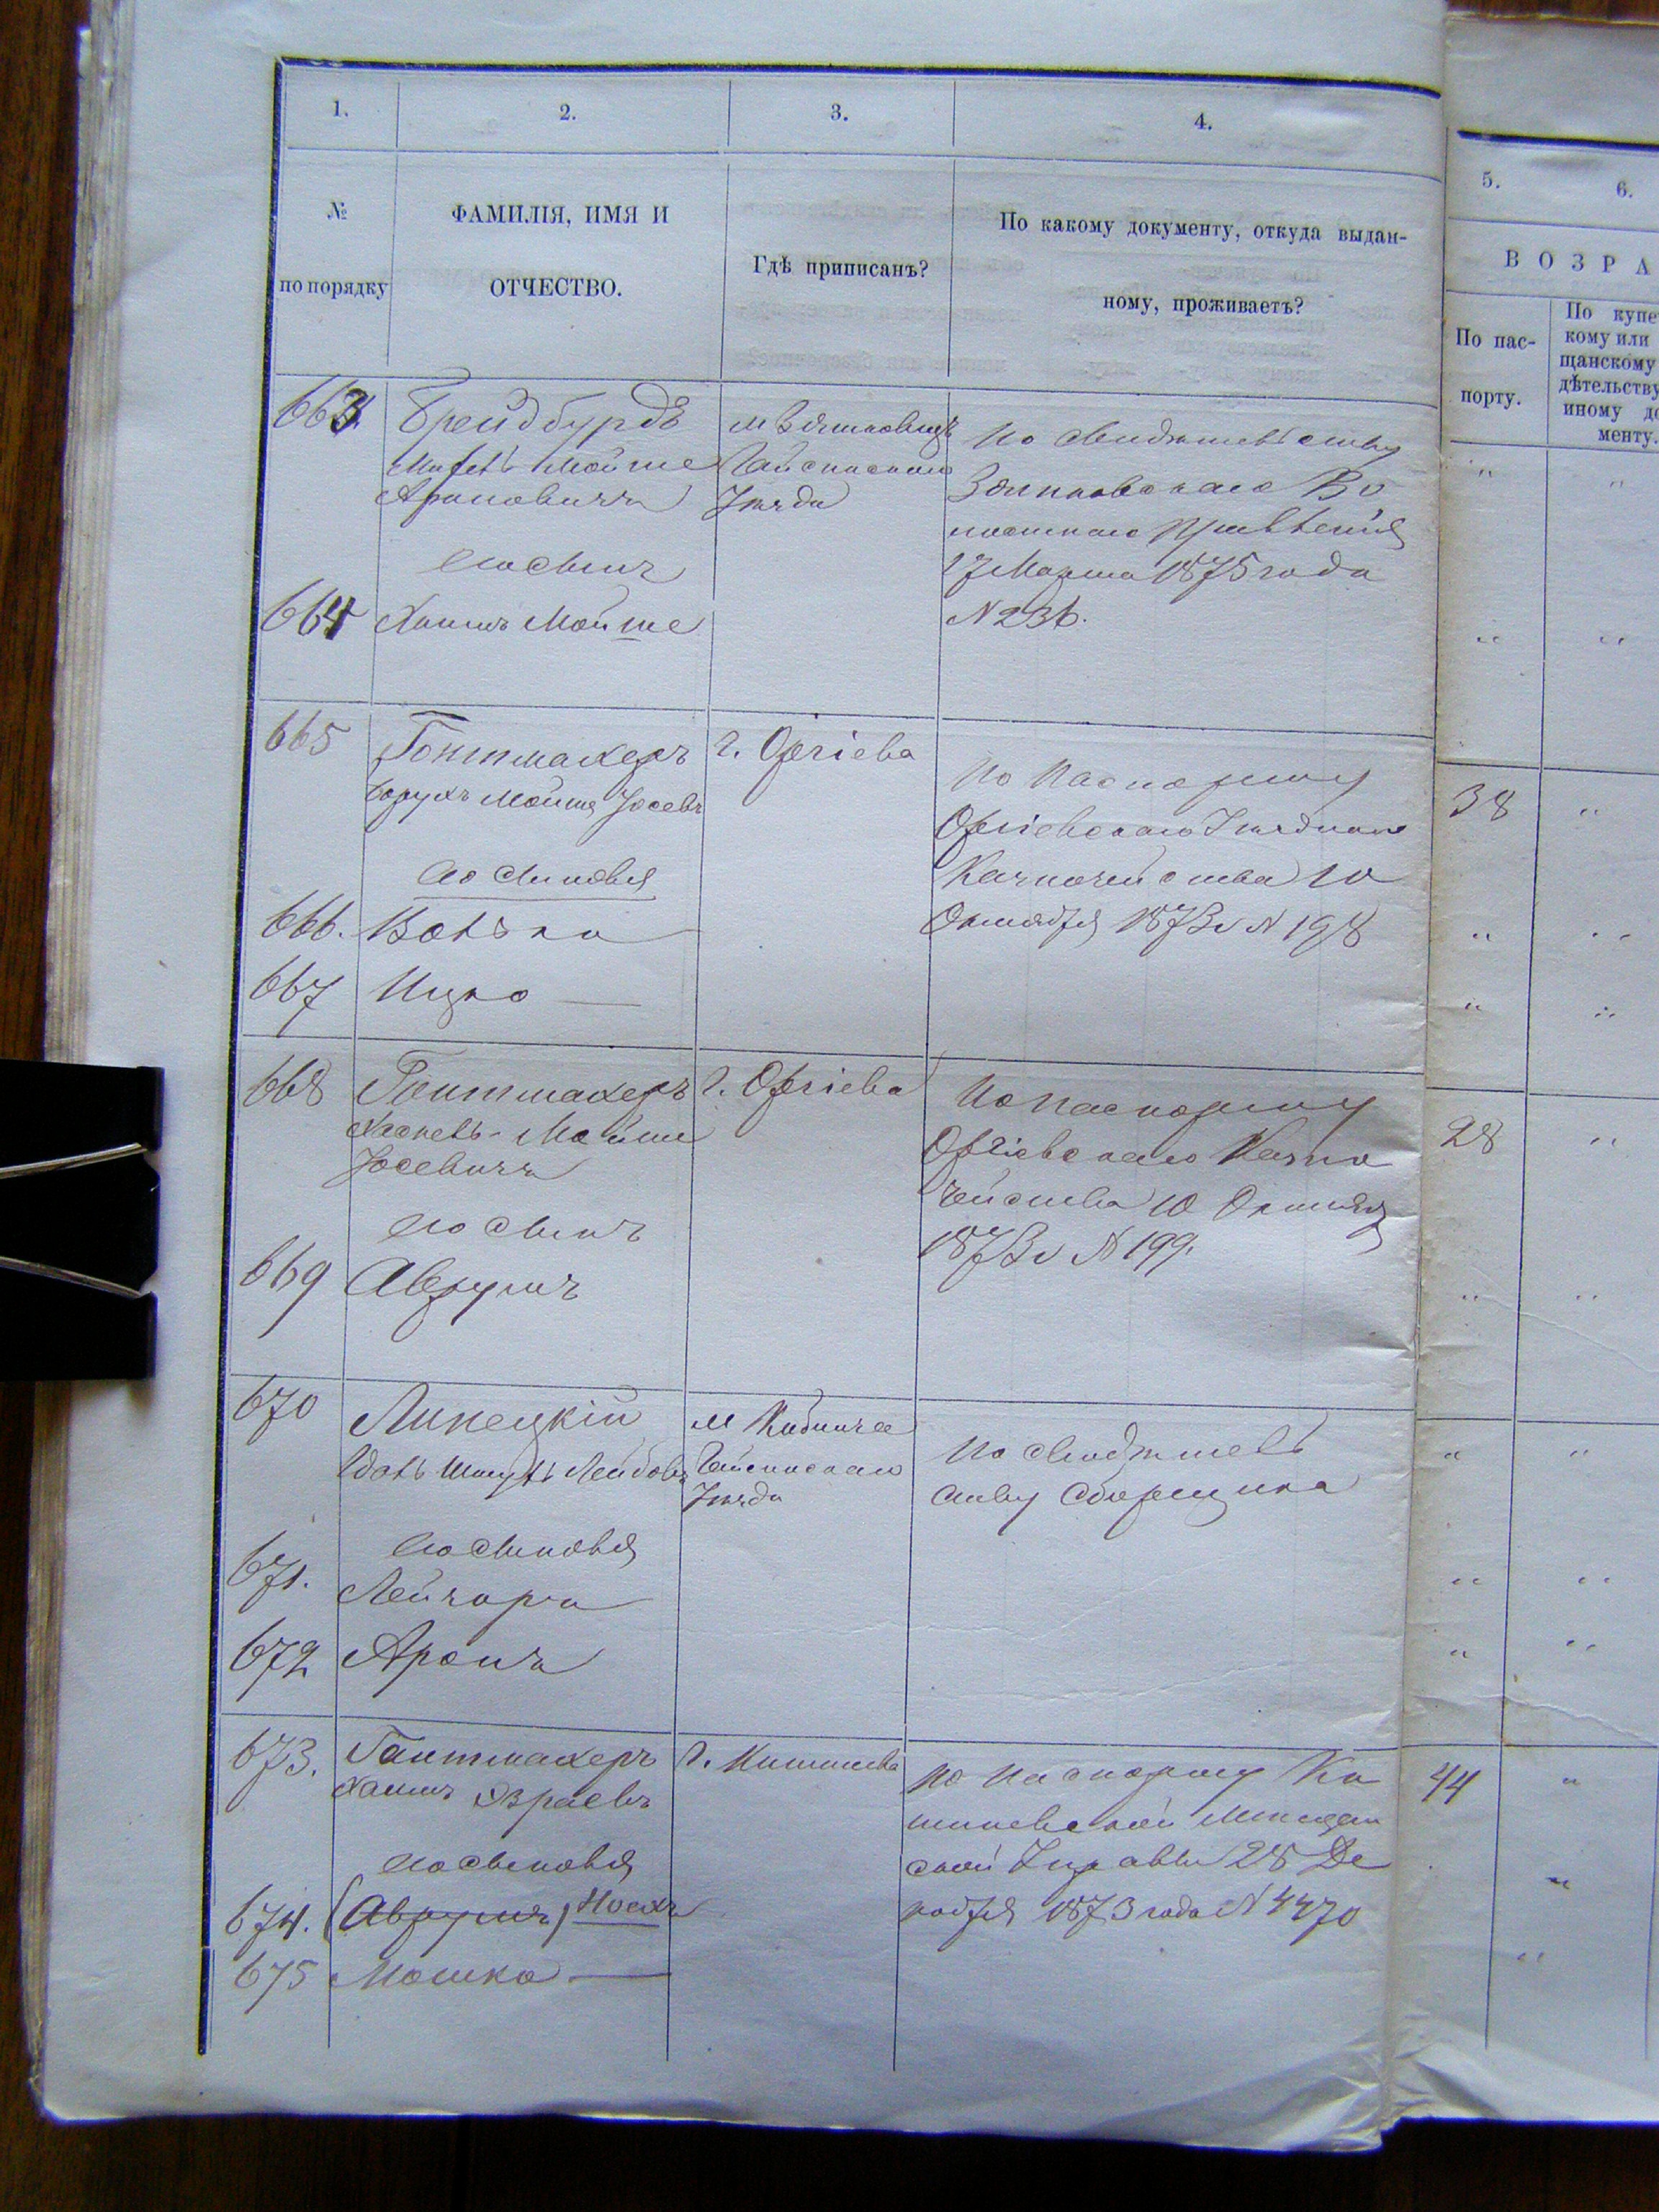 1.
2.
3.
4.
5.
6.
№
по порядку
ФАМИЛІЯ, ИМЯ И
ОТЧЕСТВО.
Гдѣ приписанъ?
По какому документу, откуда выдан-
ному, проживаетъ?
ВОЗРА
По пас-
порту.
По купе
кому или
щанскому
дѣтельству
иному до
менту.
663
Брейдбурдъ
Мойше
Ароновичъ
Гайсинскаго
Уѣзда
По свидѣтельству
Волостнаго Правленія
17 Марта 1875 года
N 236.
его сынъ
664
Хаимъ Мойше
665
Гонтмахеръ
Борухъ Мойше Іосевъ
г. Оргіева
По паспорту
Оргіевскаго Уѣзднаго
Казначейства 10
Октября 1873 г N 198
38
его сыновья
666.
Волько
667
Ицко
668
Гонтмахеръ
Хаскель-Мойше
Іосевичъ
г. Оргіева
По паспорту
Оргіевскаго Казна
чейства 10 Октября
1873 г N 199.
28
его сынъ
669
Аврумъ
670
Липецкій
Шмуль Лейбовъ
м Кибличъ
Гайсинскаго
Уѣзда
По свидѣтель
ству Сборщика
его сыновья
671.
672
Аронъ
673.
Гантмахеръ
Хаимъ Израевъ
г. Кишинева
По паспорту Ки
шиневской Мѣщан
ской Управы 28 Де
кабря 1873 года N 4470
44
его сыновья
674. (Аврумъ) Носахъ
675
Мошко